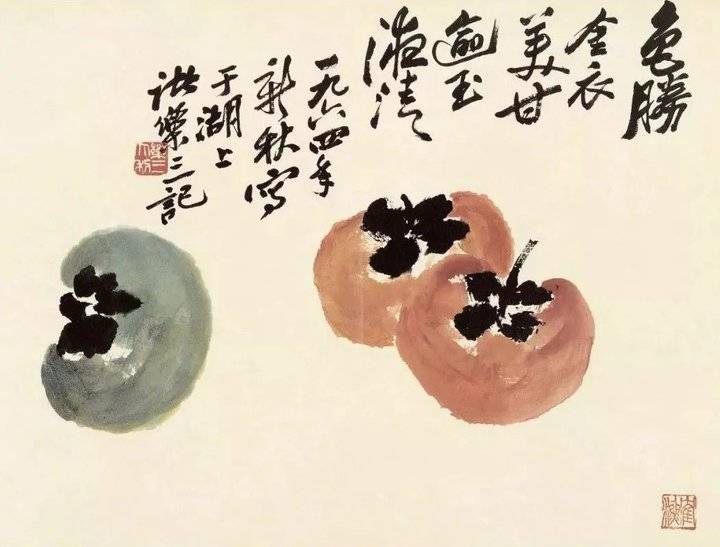 色勝
金衣
美甘
逾玉
液清
一九六四年
新秋寫
于湖上
諸樂三記